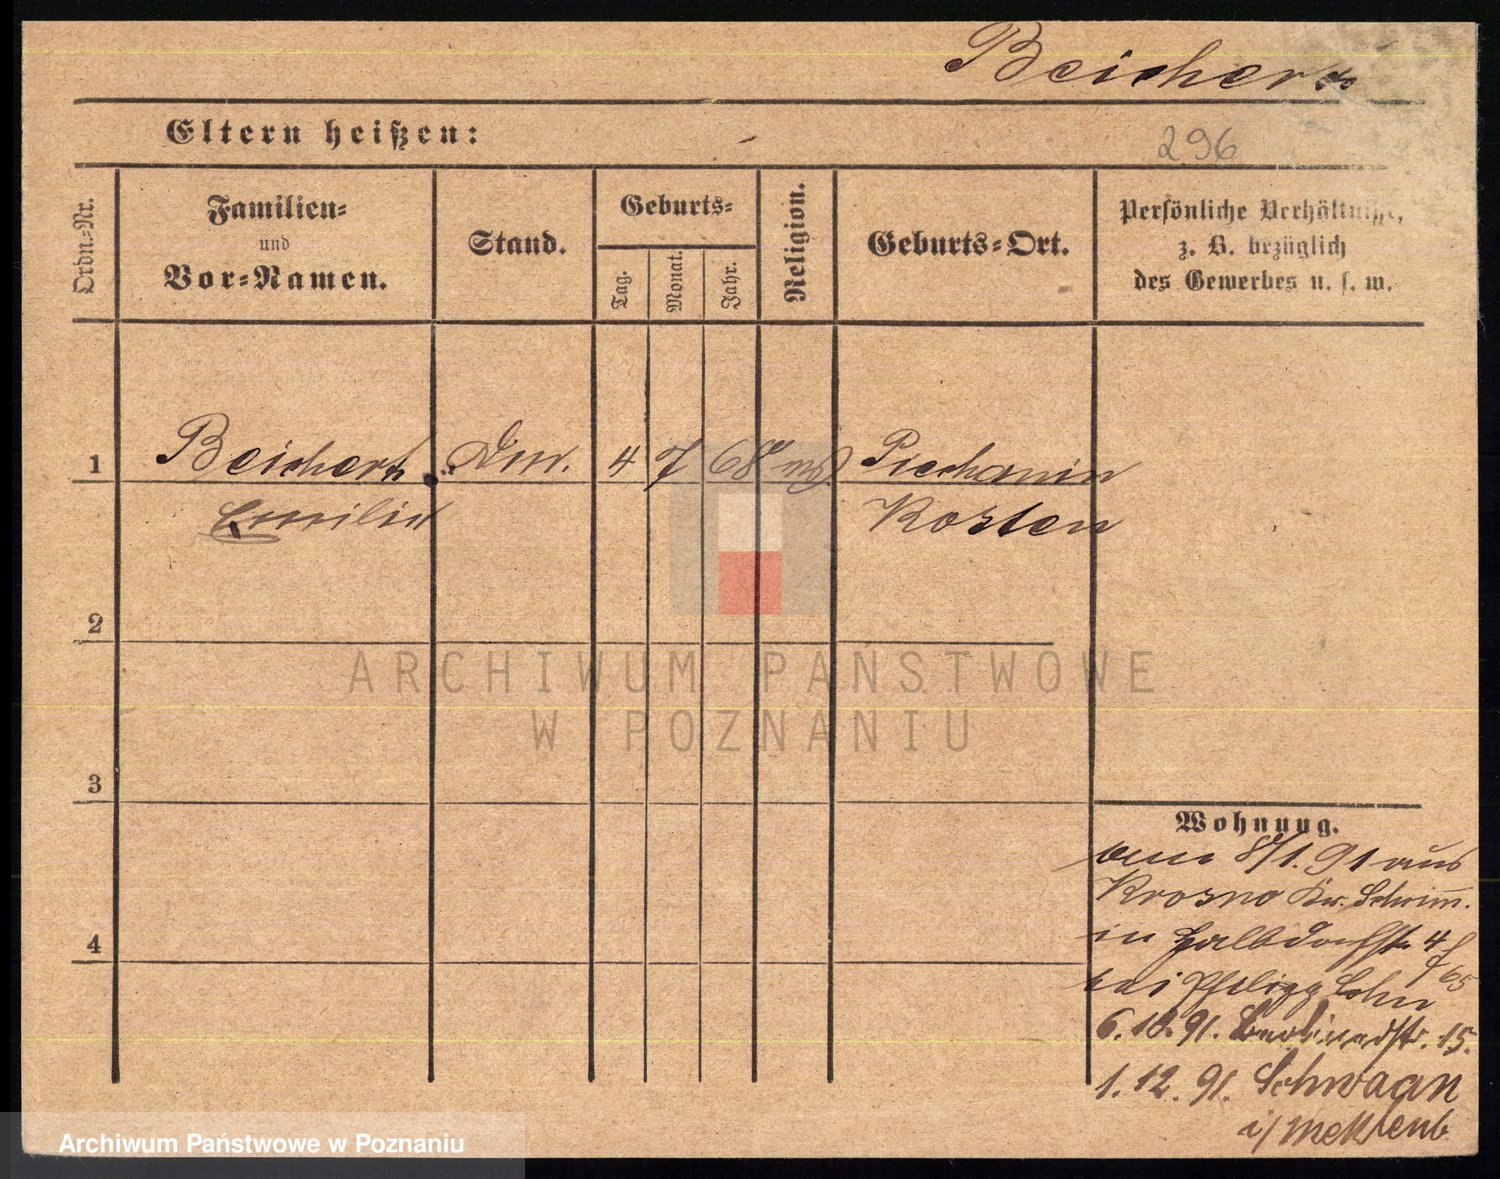 Beichert
Eltern heißen:
296
Ordn.-Nr.
Familien-
und
Vor-Namen.
Stand.
Geburts-
Tag.
Monat.
Jahr.
Religion.
Geburts-Ort.
Persönliche Verhältnisse,
z. B. bezüglich
des Gewerbes u. s. w.
1 Beichert Dm. 4 7 68 Piechanin
Emilie Kosten
2
3
4
ARCHIWUM PAŃSTWOWE
W POZNANIU
Wohnung.
8/1. 91 aus
Krosno Kr. Schrimm.
in Halbdorfstr. 4
bei Philipp Cohn
6. 10. 91. 15.
1. 12. 91. Schwaan
i/ Meklenb
Archiwum Państwowe w Poznaniu